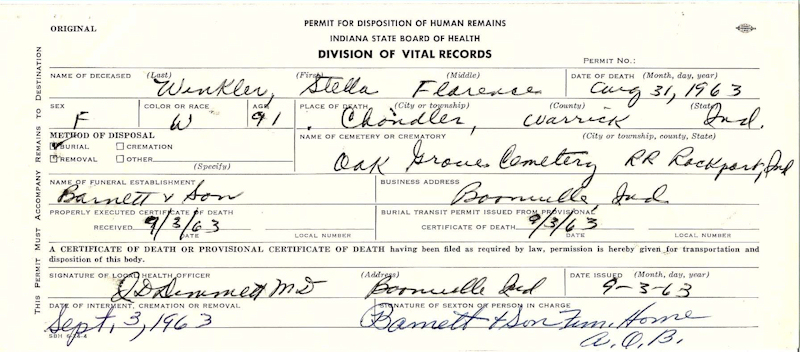 ORIGINAL
PERMIT FOR DISPOSITION OF HUMAN REMAINS
INDIANA STATE BOARD OF HEALTH
DIVISION OF VITAL RECORDS
PERMIT NO.:
THIS PERMIT MUST ACCOMPANY REMAINS TO DESTINATION
NAME OF DECEASED (Last) (First) (Middle) DATE OF DEATH (Month, day, year)
Winkler, Stella Florence Aug 31, 1963
SEX COLOR OR RACE AGE PLACE OF DEATH (City or township) (County) (State)
F W 91 Chandler, Warrick Ind.
METHOD OF DISPOSAL NAME OF CEMETERY OR CREMATORY (City or township, county, State)
BURIAL CREMATION
REMOVAL OTHER
(Specify)
Oak Grove Cemetery RR Rockport, Ind
NAME OF FUNERAL ESTABLISHMENT BUSINESS ADDRESS
Barnett & Son Boonville, Ind.
PROPERLY EXECUTED CERTIFICATE OF DEATH BURIAL TRANSIT PERMIT ISSUED FROM PROVISIONAL
RECEIVED 9/3/63 CERTIFICATE OF DEATH: 9/3/63
DATE LOCAL NUMBER DATE LOCAL NUMBER
A CERTIFICATE OF DEATH OR PROVISIONAL CERTIFICATE OF DEATH having been filed as required by law, permission is hereby given for transportation and
disposition of this body.
SIGNATURE OF LOCAL HEALTH OFFICER (Address) DATE ISSUED (Month, day, year)
MD Boonville Ind 9-3-63
DATE OF INTERMENT, CREMATION OR REMOVAL SIGNATURE OF SEXTON OR PERSON IN CHARGE
Sept. 3, 1963 Barnett & Son Fun. Home
A.O.B.